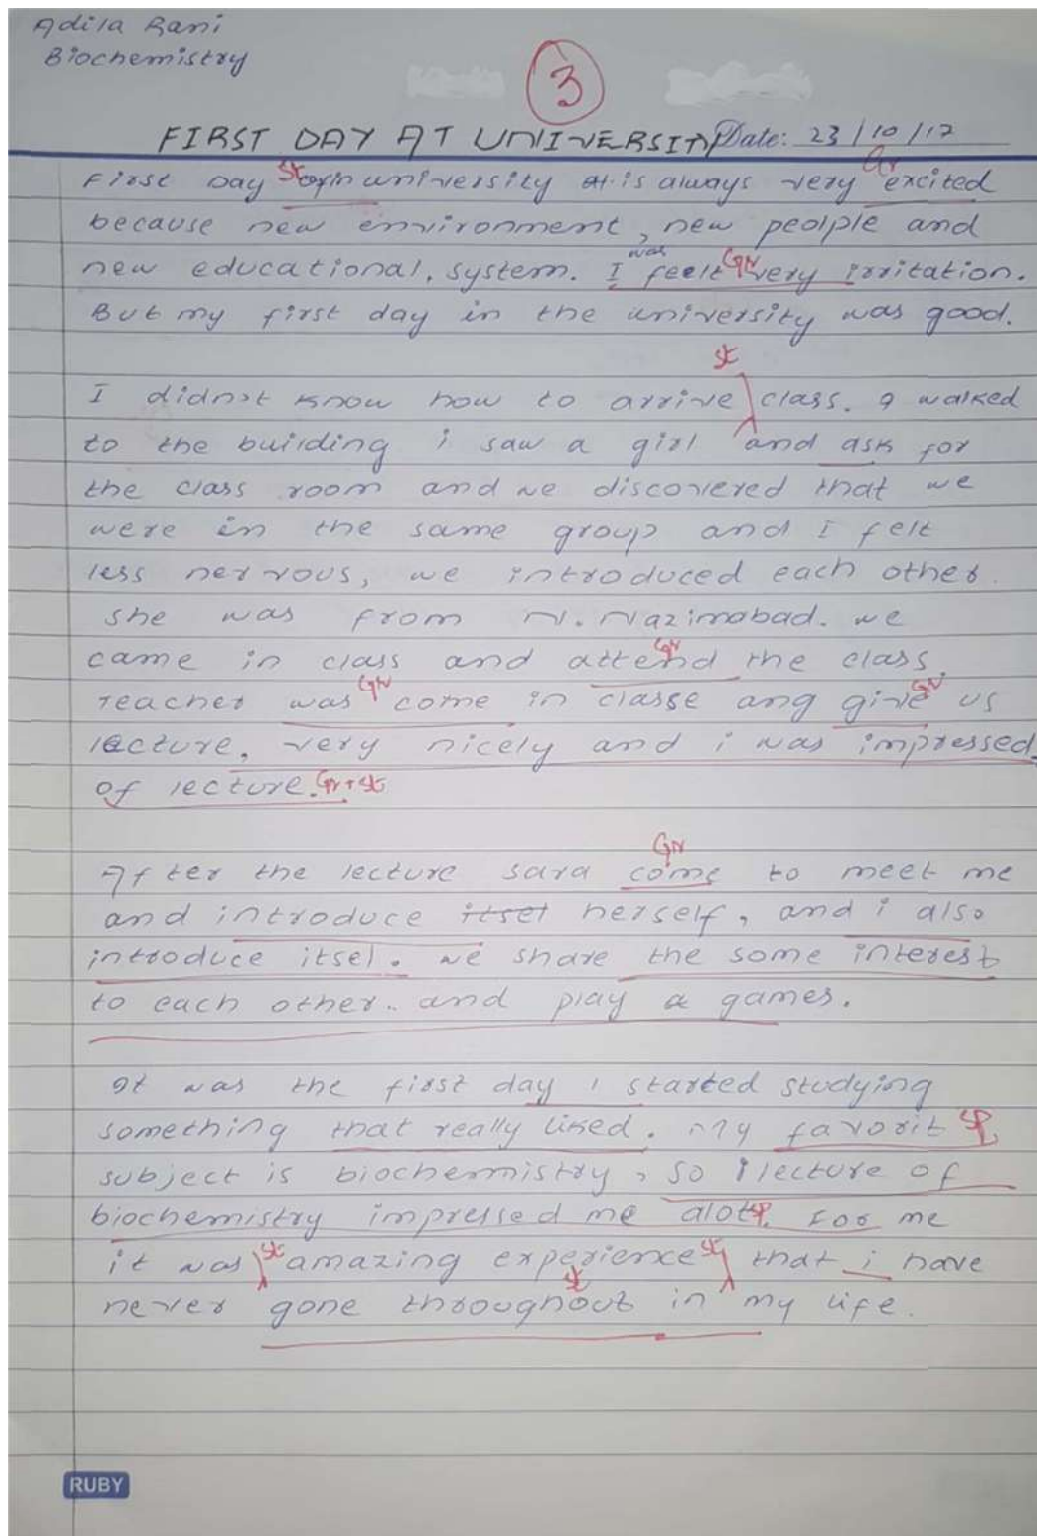 Adila Rani
Biochemistry
3
FIRST DAY AT UNIVERSITY Date: 23/10/17
Gr
First Day St in university it is always very excited
because new environment, new peolple and
was
new educational, system. I feelt Gr very irritation.
But my first day in the university was good.
St
I didn't know how to arrive class. I walked
to the building i saw a girl and ask for
the class room and we discovered that we
were in the same group and I felt
less nervous, we introduced each other.
she was from N. Nazimabad. we
Gr
came in class and attend the class.
Gr Gr
Teacher was come in classe ang give us
lecture. very nicely and i was impressed
of lecture. Gr + St
Gr
After the lecture sara come to meet me
and introduce itsel herself, and i also
introduce itsel. we share the some interest
to each other.. and play a games.
It was the first day i started studying
something that really liked. my favorit sp
subject is biochemistry, so i lecture of
biochemistry impressed me alot sp. For me
it was St amazing experience St that i have
St
never gone throughout in my life.
RUBY